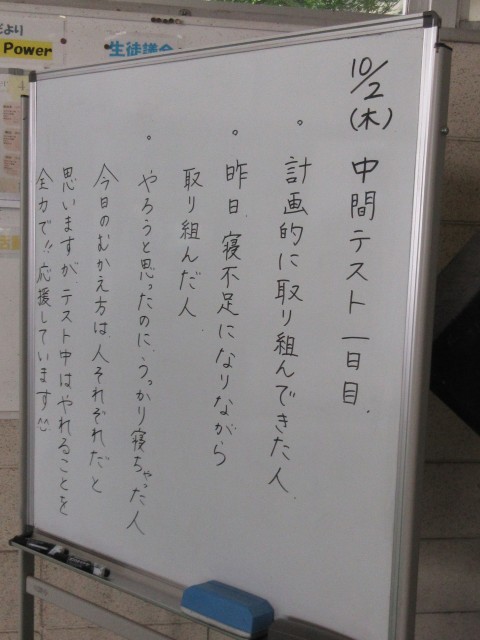 だより
Power
生徒議会
10/2(木) 中間テスト一日目.
。計画的に取り組んできた人
。昨日、寝不足になりながら
取り組んだ人
。やろうと思ったのに、うっかり寝ちゃった人
今日のむかえ方は、人それぞれだと
思いますが、テスト中はやれることを
全力で!!応援しています